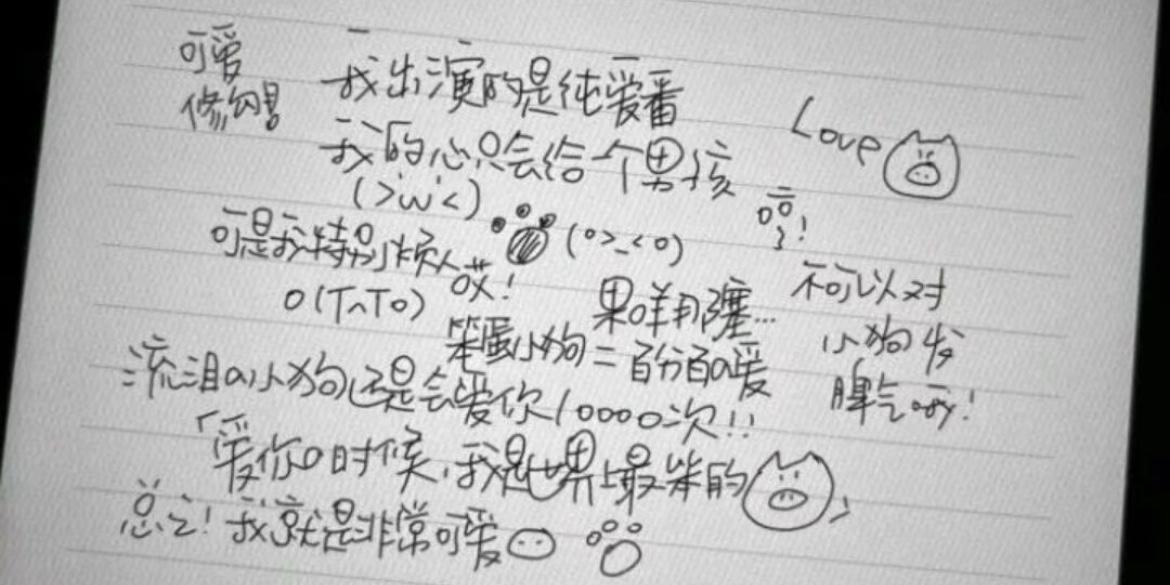 可爱
修勾!
我出演的是纯爱番
我的心只会给一个男孩
Love
(>'w'<)
(o>_<o)
哼!
可是我特别烦人哎!
o(T^To)
果咩那塞...
不可以对
小狗发
脾气呀!
笨蛋小狗=百分百a爱
流泪a小狗还是会爱你10000次!!
「爱你0时候,我是世界上最笨的」
总之!我就是非常可爱